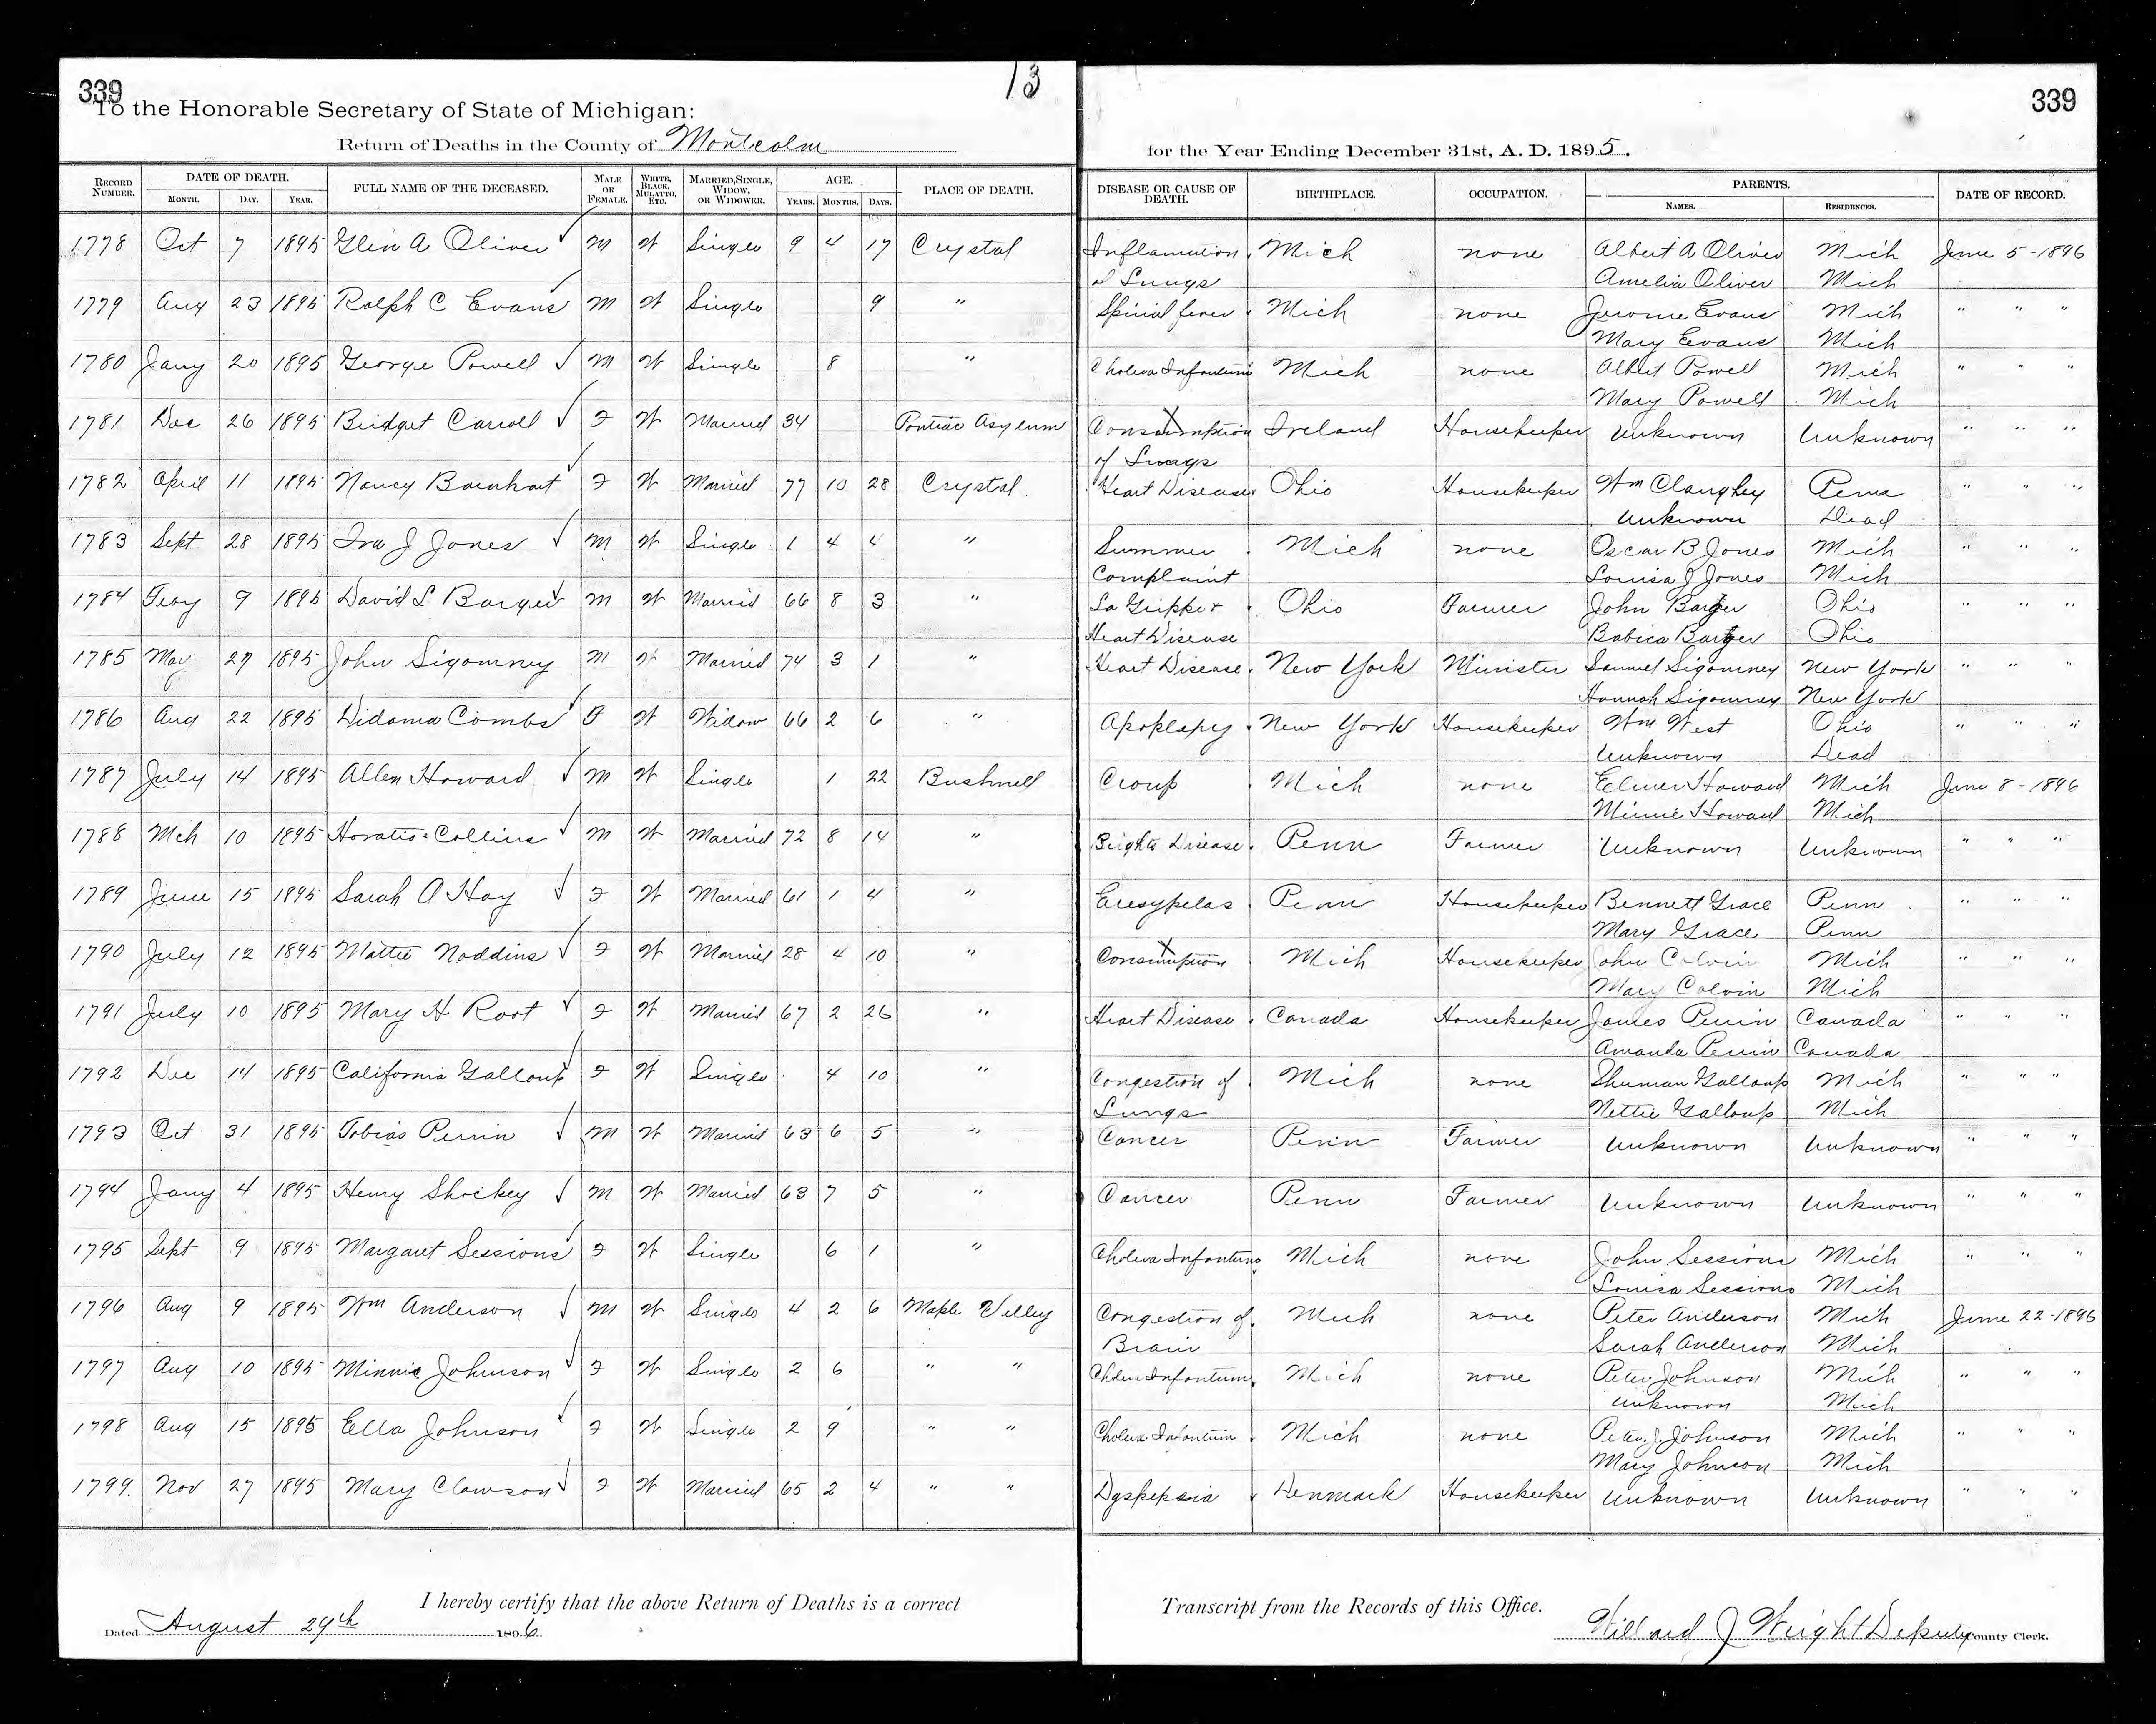 339
13
339
To the Honorable Secretary of State of Michigan:
Return of Deaths in the County of Montcalm
for the Year Ending December 31st, A. D. 1895.
RECORD NUMBER. DATE OF DEATH. MONTH. DAY. YEAR. FULL NAME OF THE DECEASED. MALE OR FEMALE. WHITE, BLACK, MULATTO, ETC. MARRIED, SINGLE, WIDOW, OR WIDOWER. AGE. YEARS. MONTHS. DAYS. PLACE OF DEATH. DISEASE OR CAUSE OF DEATH. BIRTHPLACE. OCCUPATION. PARENTS. NAMES. RESIDENCES. DATE OF RECORD.
1778 Oct 7 1895 Glen A Oliver M W Single 9 4 17 Crystal Inflamation Mich none Albert A Oliver Mich June 5-1896
of Lungs Amelia Oliver Mich
1779 Aug 23 1895 Ralph C Evans M W Single 9 " Spinal fever Mich none Jerome Evans Mich " " "
Mary Evans Mich
1780 Jany 20 1895 George Powell M W Single 8 " Cholera Infantum Mich none Albert Powell Mich " " "
Mary Powell Mich
1781 Dec 26 1895 Bridget Carroll F W Married 34 Pontiac Asylum Consumption Ireland Housekeeper Unknown Unknown " " "
of Lungs
1782 April 11 1895 Nancy Barnhart F W Married 77 10 28 Crystal Heart Disease Ohio Housekeeper Wm Clanghey Penna " " "
Unknown Dead
1783 Sept 28 1895 Ira J Jones M W Single 1 4 4 " Summer Mich none Oscar B Jones Mich " " "
Complaint Louisa J Jones Mich
1784 Feby 9 1895 David L Barger M W Married 66 8 3 " La Grippe & Ohio Farmer John Barger Ohio " " "
Heart Disease Babica Barger Ohio
1785 May 27 1895 John Sigourney M W Married 74 3 1 " Heart Disease New York Minister Samuel Sigourney New York " " "
Hannah Sigourney New York
1786 Aug 22 1895 Didama Combs F W Widow 66 2 6 " Apoplexy New York Housekeeper Wm West Ohio " " "
Unknown Dead
1787 July 14 1895 Allen Howard M W Single 1 22 Bushnell Croup Mich none Elmer Howard Mich June 8-1896
Minnie Howard Mich
1788 Mch 10 1895 Horatio Collins M W Married 72 8 14 " Brights Disease Penn Farmer Unknown Unknown " " "
1789 June 15 1895 Sarah A Hay F W Married 61 1 4 " Eresypelas Penn Housekeeper Bennett Grace Penn " " "
Mary Grace Penn
1790 July 12 1895 Mattie Noddins F W Married 28 4 10 " Consumption Mich Housekeeper John Colvin Mich " " "
Mary Colvin Mich
1791 July 10 1895 Mary H Root F W Married 67 2 26 " Heart Disease Canada Housekeeper James Perrin Canada " " "
Amanda Perrin Canada
1792 Dec 14 1895 California Galloup F W Single 4 10 " Congestion of Mich none Shuman Galloup Mich " " "
Lungs Nettie Galloup Mich
1793 Oct 31 1895 Tobias Perrin M W Married 63 6 5 " Cancer Penn Farmer Unknown Unknown " " "
1794 Jany 4 1895 Henry Shockey M W Married 63 7 5 " Cancer Penn Farmer Unknown Unknown " " "
1795 Sept 9 1895 Margaret Sessions F W Single 6 1 " Cholera Infantum Mich none John Sessions Mich " " "
Louisa Sessions Mich
1796 Aug 9 1895 Wm Anderson M W Single 4 2 6 Maple Velley Congestion of Mich none Peter Anderson Mich June 22-1896
Brain Sarah Anderson Mich
1797 Aug 10 1895 Minnie Johnson F W Single 2 6 " " Cholera Infantum Mich none Peter Johnson Mich " " "
Unknown Mich
1798 Aug 15 1895 Ella Johnson F W Single 2 9 " " Cholera Infantum Mich none Peter J. Johnson Mich " " "
Mary Johnson Mich
1799. Nov 27 1895 Mary Clawson F W Married 65 2 4 " " Dyspepsia Denmark Housekeeper Unknown Unknown " " "
I hereby certify that the above Return of Deaths is a correct Transcript from the Records of this Office.
Dated August 29th 1896. Willard J Wright Deputy County Clerk.